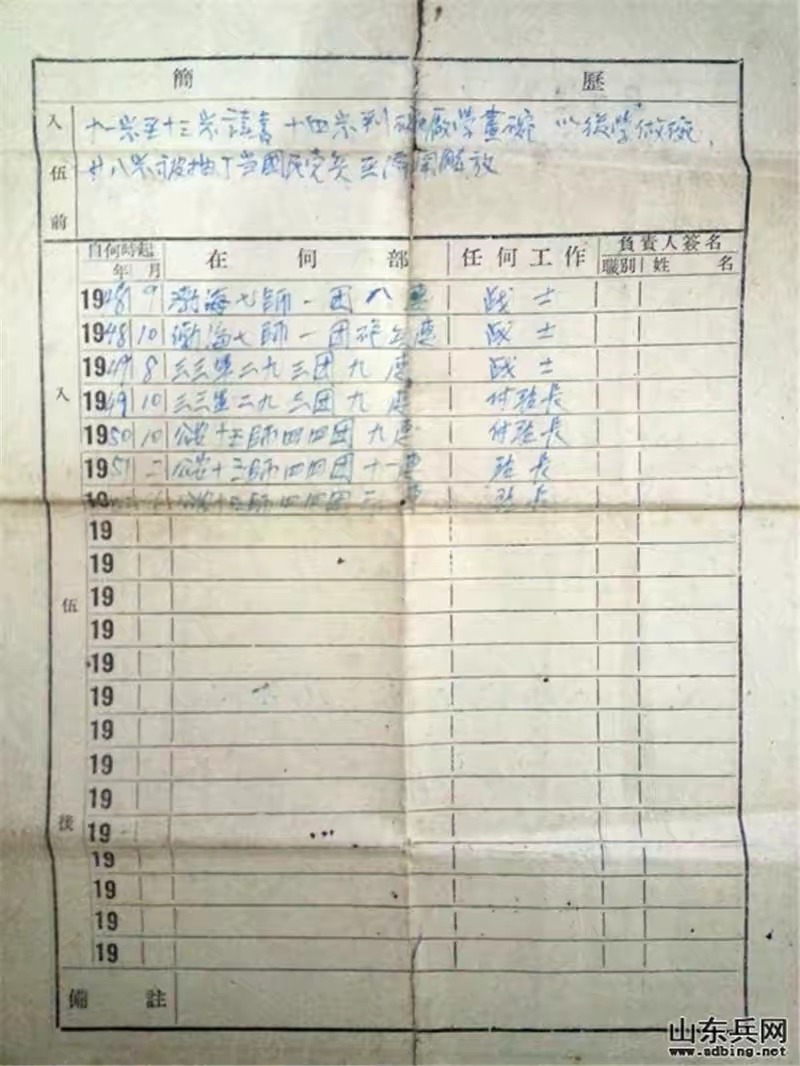 簡 歷
入伍前
十一岁至十三岁讀書 十四岁到 廠学畫碗 以後学做碗，
廿八岁被抽丁当國民党兵至濟南解放
自何時起 年 月 在何部 任何工作 負責人簽名 職別 姓名
入伍後
1948 9 渤海七師一团八連 战士
1948 10 渤海七師一团 連 战士
1949 8 三三軍二九三团九連 战士
1949 10 三三軍二九三团九連 付班長
1950 10 公安十三師四四团九連 付班長
1951 二 公安十三師四四团十一連 班長
19 公安十三師四四团 連 班長
19
19
19
19
19
19
19
19
19
19
19
19
19
19
備註
山东兵网
www.adbing.net